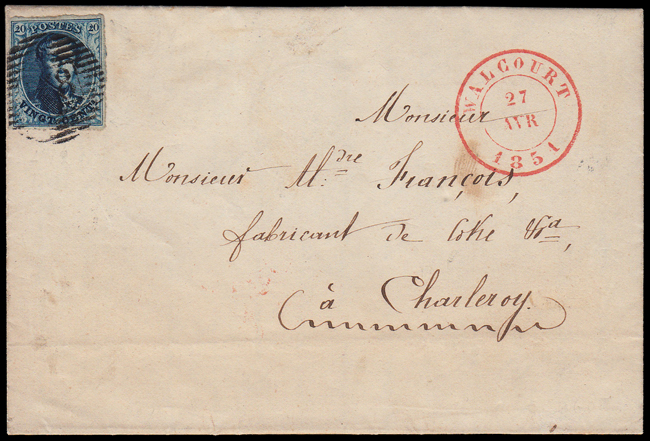 20 POSTES 20
VINGT CENTS
WALCOURT
27
AVR
1851
Monsieur
Monsieur Al.dre François,
fabricant de Coke &a,
à Charleroy.